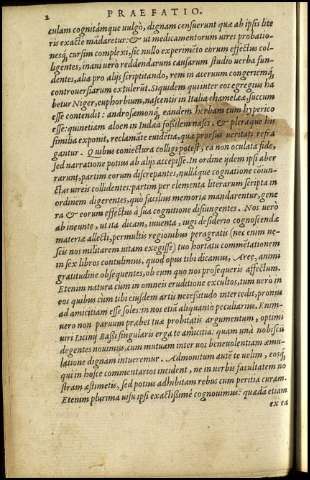 2 PRAEFATIO.
culam cognitámque uulgò, dignam censuerunt quæ ab ipsis lite
ris exacte mãdaretur: & ut medicamentorum uires probatio-
nesq́; cursim complexi, sic nullo experimẽto eorum effectus col-
ligentes, inani uerò reddendarum causarum studio uerba fun-
dentes, alia pro alijs scriptitando, rem in aceruum congeremq́;
controuersiarum extulerũt. Siquidem qui inter eos egregius ha
betur Niger, euphorbium, nascentis in Italia chamelææ, succum
esse contendit: androsæmonq́; eandem herbam cum hyperico
esse: quinetiam aloen in Indæa fossilem nasci, & pleraque his
similia exponit, reclamãte euidẽtia, quæ prorsus ueritati refra
gantur. Quibus coniectura colligi potest, ea non oculata fide,
sed narratione potius ab alijs accepisse. In ordine ijdem ipsi aber
rarunt, partim eorum discrepantes, nullâque cognatione coniun-
ctas uireis collidentes: partim per elementa literarum scripta in
ordinem digerentes, quò facilius memoriæ mandarentur, gene
ra & eorum effectus à sua cognatione disiungentes. Nos uerò
ab ineunte, ut ita dicam, iuuenta, iugi desiderio cognoscendæ
materiæ allecti, permultis regionibus peragratis (nec enim ne-
scis nos militarem uitam exegisse) tuo hortatu commẽtationem
in sex libros contulimus, quod opus tibi dicamus, Aree, animi
gratitudine obsequentes, ob eum quo nos prosequeris affectum.
Etenim natura cùm in omneis eruditione excultos, tum uerò in
eos quibus cùm tibi eiusdem artis necessitudo intercedit, pronus
ad amicitiam esse soles: in nos etiã aliquantò peculiarius. Enim-
uero non paruum præbet tuæ probitatis argumentum, optimi
uiri Licinij Bassi singularis erga te amicitia: quam unà nobiscũ
degentes nouimus, cùm mutuam inter uos beneuolentiam æmu-
latione dignam intueremur. Admonitum autẽ te uelim, eosq́;
qui in hosce commentarios incident, ne in uerbis facultatem no
stram æstimetis, sed potius adhibitam rebus cum peritia curam.
Etenim plurima uisu ipsi exactissimè cognouimus: quædã etiam
ex ea